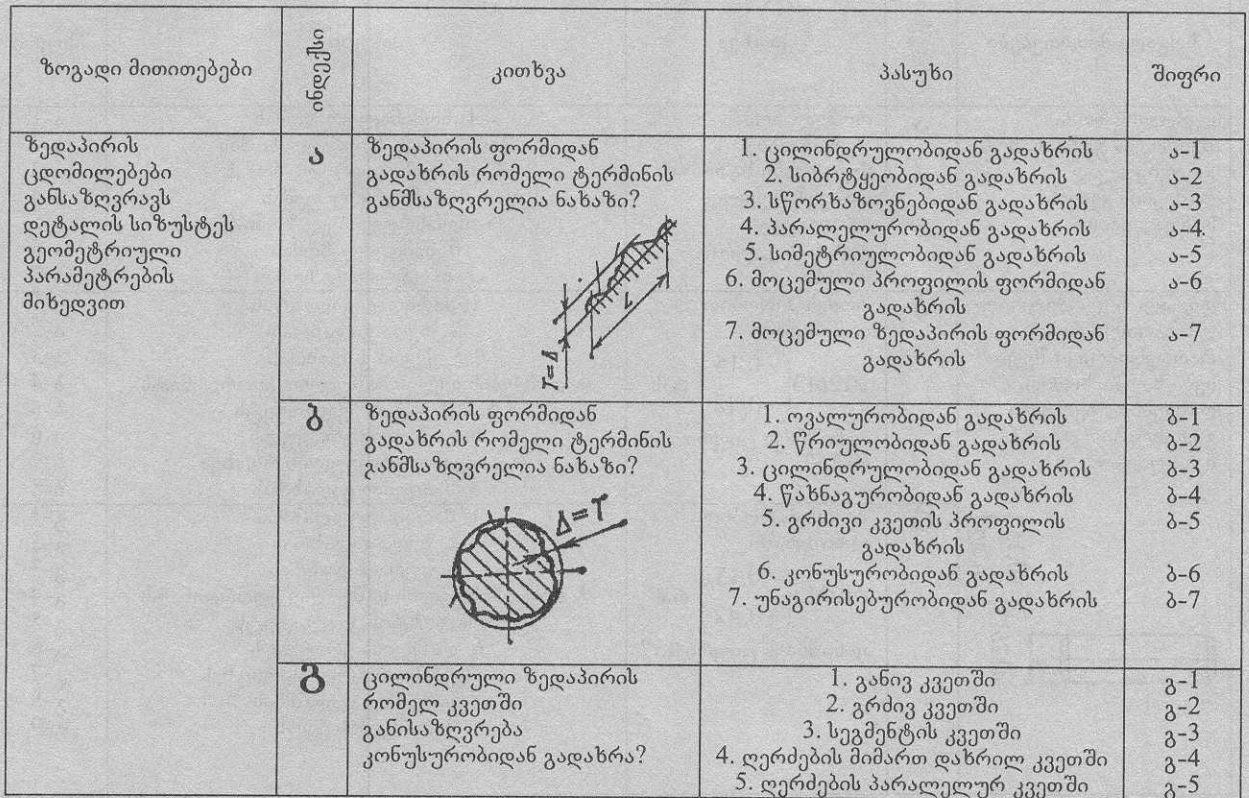 ზოგადი მითითებები
ინდექსი
კითხვა
პასუხი
შიფრი
ზედაპირის
ცდომილებები
განსაზღვრავს
დეტალის სიზუსტეს
გეომეტრიული
პარამეტრების
მიხედვით
ა
ზედაპირის ფორმიდან
გადახრის რომელი ტერმინის
განმსაზღვრელია ნახაზი?
L
T=Δ
1. ცილინდრულობიდან გადახრის
2. სიბრტყეობიდან გადახრის
3. სწორხაზოვნებიდან გადახრის
4. პარალელურობიდან გადახრის
5. სიმეტრიულობიდან გადახრის
6. მოცემული პროფილის ფორმიდან
გადახრის
7. მოცემული ზედაპირის ფორმიდან
გადახრის
ა-1
ა-2
ა-3
ა-4.
ა-5
ა-6
ა-7
ბ
ზედაპირის ფორმიდან
გადახრის რომელი ტერმინის
განმსაზღვრელია ნახაზი?
Δ=T
1. ოვალურობიდან გადახრის
2. წრიულობიდან გადახრის
3. ცილინდრულობიდან გადახრის
4. წახნაგურობიდან გადახრის
5. გრძივი კვეთის პროფილის
გადახრის
6. კონუსურობიდან გადახრის
7. უნაგირისებურობიდან გადახრის
ბ-1
ბ-2
ბ-3
ბ-4
ბ-5
ბ-6
ბ-7
გ
ცილინდრული ზედაპირის
რომელ კვეთში
განისაზღვრება
კონუსურობიდან გადახრა?
1. განივ კვეთში
2. გრძივ კვეთში
3. სეგმენტის კვეთში
4. ღერძების მიმართ დახრილ კვეთში
5. ღერძების პარალელურ კვეთში
გ-1
გ-2
გ-3
გ-4
გ-5